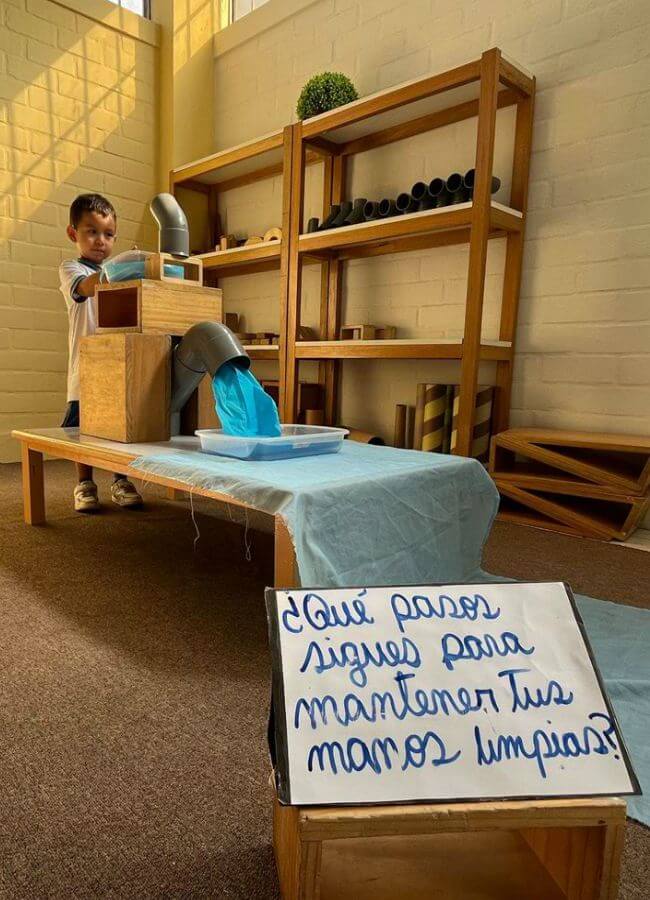 ¿Qué pasos
sigues para
mantener tus
manos limpias?